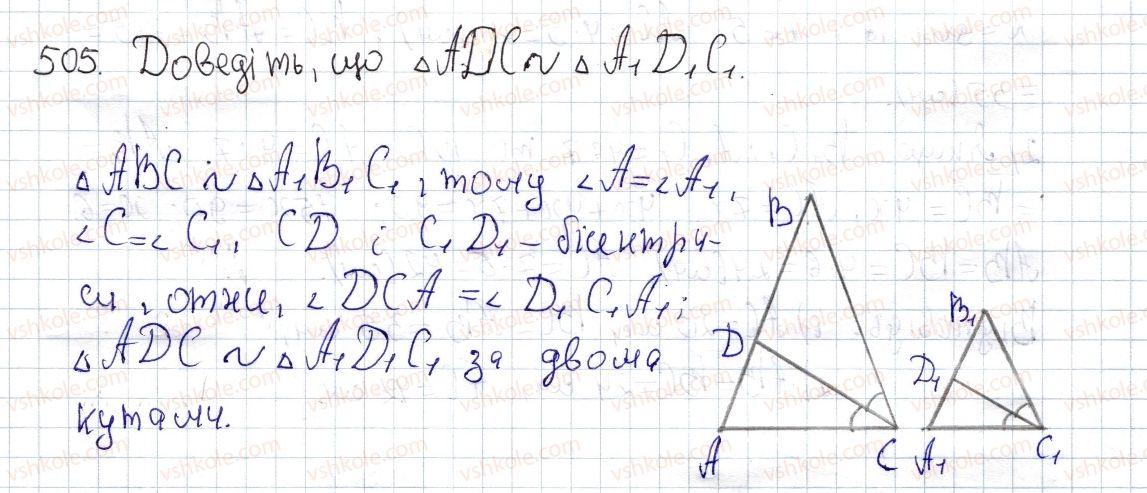 505. Доведіть, що △ADC ~ △A₁D₁C₁.
△ABC ~ △A₁B₁C₁, тому ∠A=∠A₁,
∠C=∠C₁. CD і C₁D₁ – бісектри-
си, отже, ∠DCA = ∠D₁C₁A₁;
△ADC ~ △A₁D₁C₁ за двома
кутами.
B
D
A
C
B₁
D₁
A₁
C₁
vshkole.com